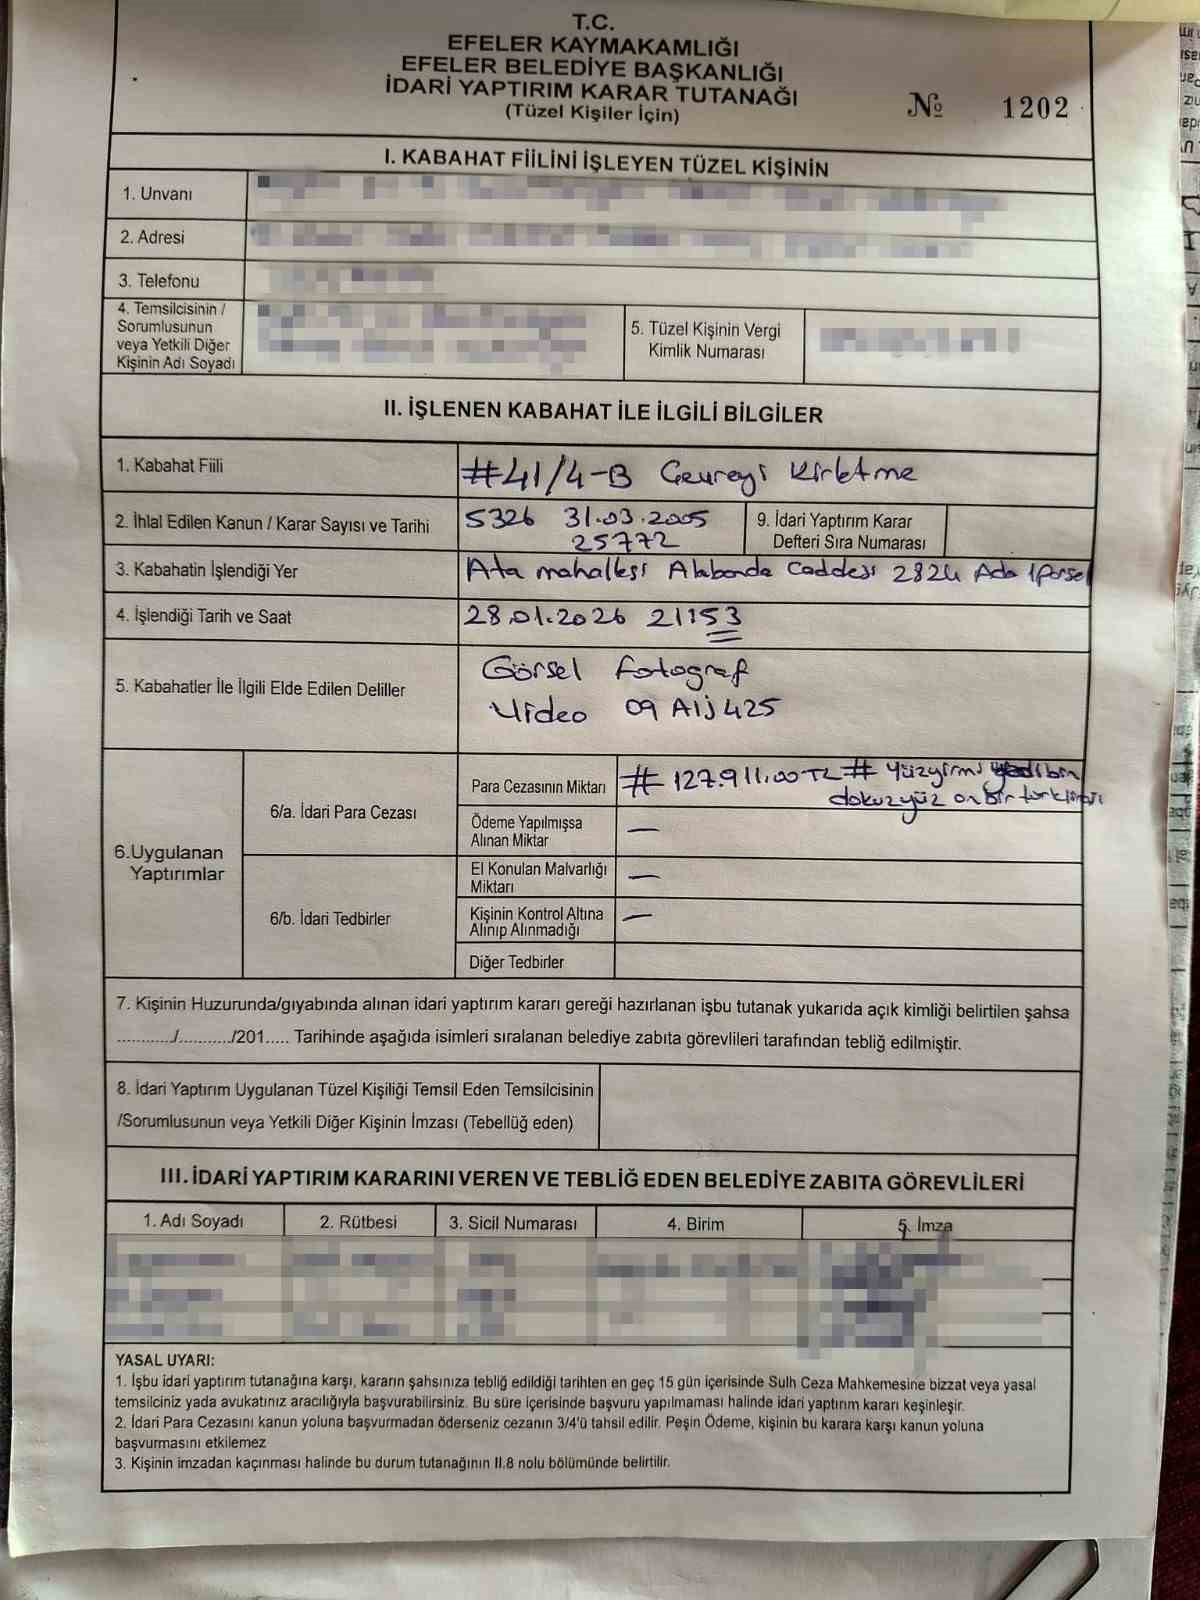 T.C.
EFELER KAYMAKAMLIĞI
EFELER BELEDİYE BAŞKANLIĞI
İDARİ YAPTIRIM KARAR TUTANAĞI
(Tüzel Kişiler İçin)
№ 1202
I. KABAHAT FİİLİNİ İŞLEYEN TÜZEL KİŞİNİN
1. Unvanı
2. Adresi
3. Telefonu
4. Temsilcisinin /
Sorumlusunun
veya Yetkili Diğer
Kişinin Adı Soyadı
5. Tüzel Kişinin Vergi
Kimlik Numarası
II. İŞLENEN KABAHAT İLE İLGİLİ BİLGİLER
1. Kabahat Fiili
#41/4-B Çevreyi Kirletme
2. İhlal Edilen Kanun / Karar Sayısı ve Tarihi
5326 31.03.2005
25772
9. İdari Yaptırım Karar
Defteri Sıra Numarası
3. Kabahatin İşlendiği Yer
Ata mahallesi Alabanda Caddesi 2824 Ada 1Parsel
4. İşlendiği Tarih ve Saat
28.01.2026 21:53
5. Kabahatler İle İlgili Elde Edilen Deliller
Görsel fotograf
Video 09 AIJ425
6.Uygulanan
Yaptırımlar
6/a. İdari Para Cezası
Para Cezasının Miktarı
# 127.911.00 TL # yüzyirmi yedibin
dokuzyüz on bir türk lirası
Ödeme Yapılmışsa
Alınan Miktar
—
6/b. İdari Tedbirler
El Konulan Malvarlığı
Miktarı
—
Kişinin Kontrol Altına
Alınıp Alınmadığı
—
Diğer Tedbirler
7. Kişinin Huzurunda/gıyabında alınan idari yaptırım kararı gereği hazırlanan işbu tutanak yukarıda açık kimliği belirtilen şahsa
.........../.........../201..... Tarihinde aşağıda isimleri sıralanan belediye zabıta görevlileri tarafından tebliğ edilmiştir.
8. İdari Yaptırım Uygulanan Tüzel Kişiliği Temsil Eden Temsilcisinin
/Sorumlusunun veya Yetkili Diğer Kişinin İmzası (Tebellüğ eden)
III. İDARİ YAPTIRIM KARARINI VEREN VE TEBLİĞ EDEN BELEDİYE ZABITA GÖREVLİLERİ
1. Adı Soyadı 2. Rütbesi 3. Sicil Numarası 4. Birim 5. İmza
YASAL UYARI:
1. İşbu idari yaptırım tutanağına karşı, kararın şahsınıza tebliğ edildiği tarihten en geç 15 gün içerisinde Sulh Ceza Mahkemesine bizzat veya yasal
temsilciniz yada avukatınız aracılığıyla başvurabilirsiniz. Bu süre içerisinde başvuru yapılmaması halinde idari yaptırım kararı keşinleşir.
2. İdari Para Cezasını kanun yoluna başvurmadan öderseniz cezanın 3/4'ü tahsil edilir. Peşin Ödeme, kişinin bu karara karşı kanun yoluna
başvurmasını etkilemez
3. Kişinin imzadan kaçınması halinde bu durum tutanağının II.8 nolu bölümünde belirtilir.